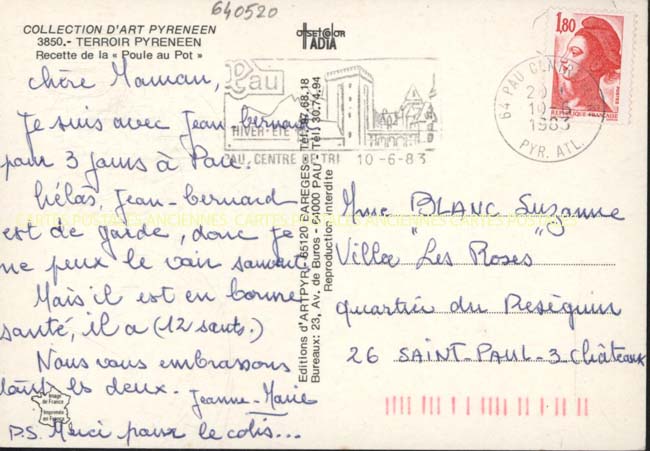 640520
COLLECTION D'ART PYRENEEN
3850.- TERROIR PYRENEEN
Recette de la « Poule au Pot »
chère Maman,
Je suis avec Jean-bernard
pour 3 jours à Pau.
hélas, Jean-bernard
est de garde, donc je
ne peux le voir souvent.
Mais il est en bonne
santé, il a (12 sauts.)
Nous vous embrassons
tous les deux.
Jeanne-Marie
P.S. Merci pour le colis...
Image de France
Imprimée en France
OFFSET COLOR
ADIA
Pau
HIVER-ETE
PAU, CENTRE DE TRI 10-6-83
Editions d'ARTPYR - 65120 BAREGES - Tél. 97.68.18
Bureaux: 23, Av. de Buros - 64000 PAU - Tél. 30.74.94
Reproduction interdite
1,80
POSTES
REPUBLIQUE FRANÇAISE
64 PAU
10-6
1983
PYR. ATL.
Mme BLANC Suzanne
Villa "Les Roses"
quartier du Reséguin
26 SAINT-PAUL-3-Châteaux
CARTES POSTALES ANCIENNES CARTES POSTALES ANCIENNES